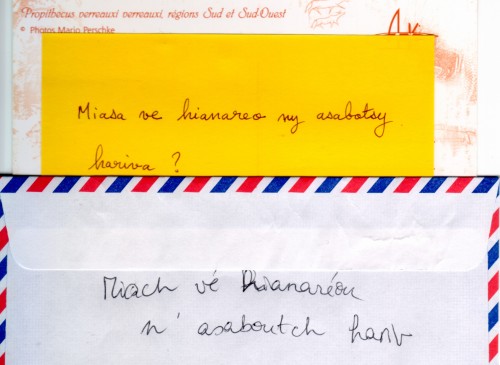 Propithecus verreauxi verreauxi, régions Sud et Sud-Ouest
© Photos Mario Perschke
Miasa ve hianareo ny asabotsy
hariva ?
Miach vé hianaréou
n' asaboutch hariv